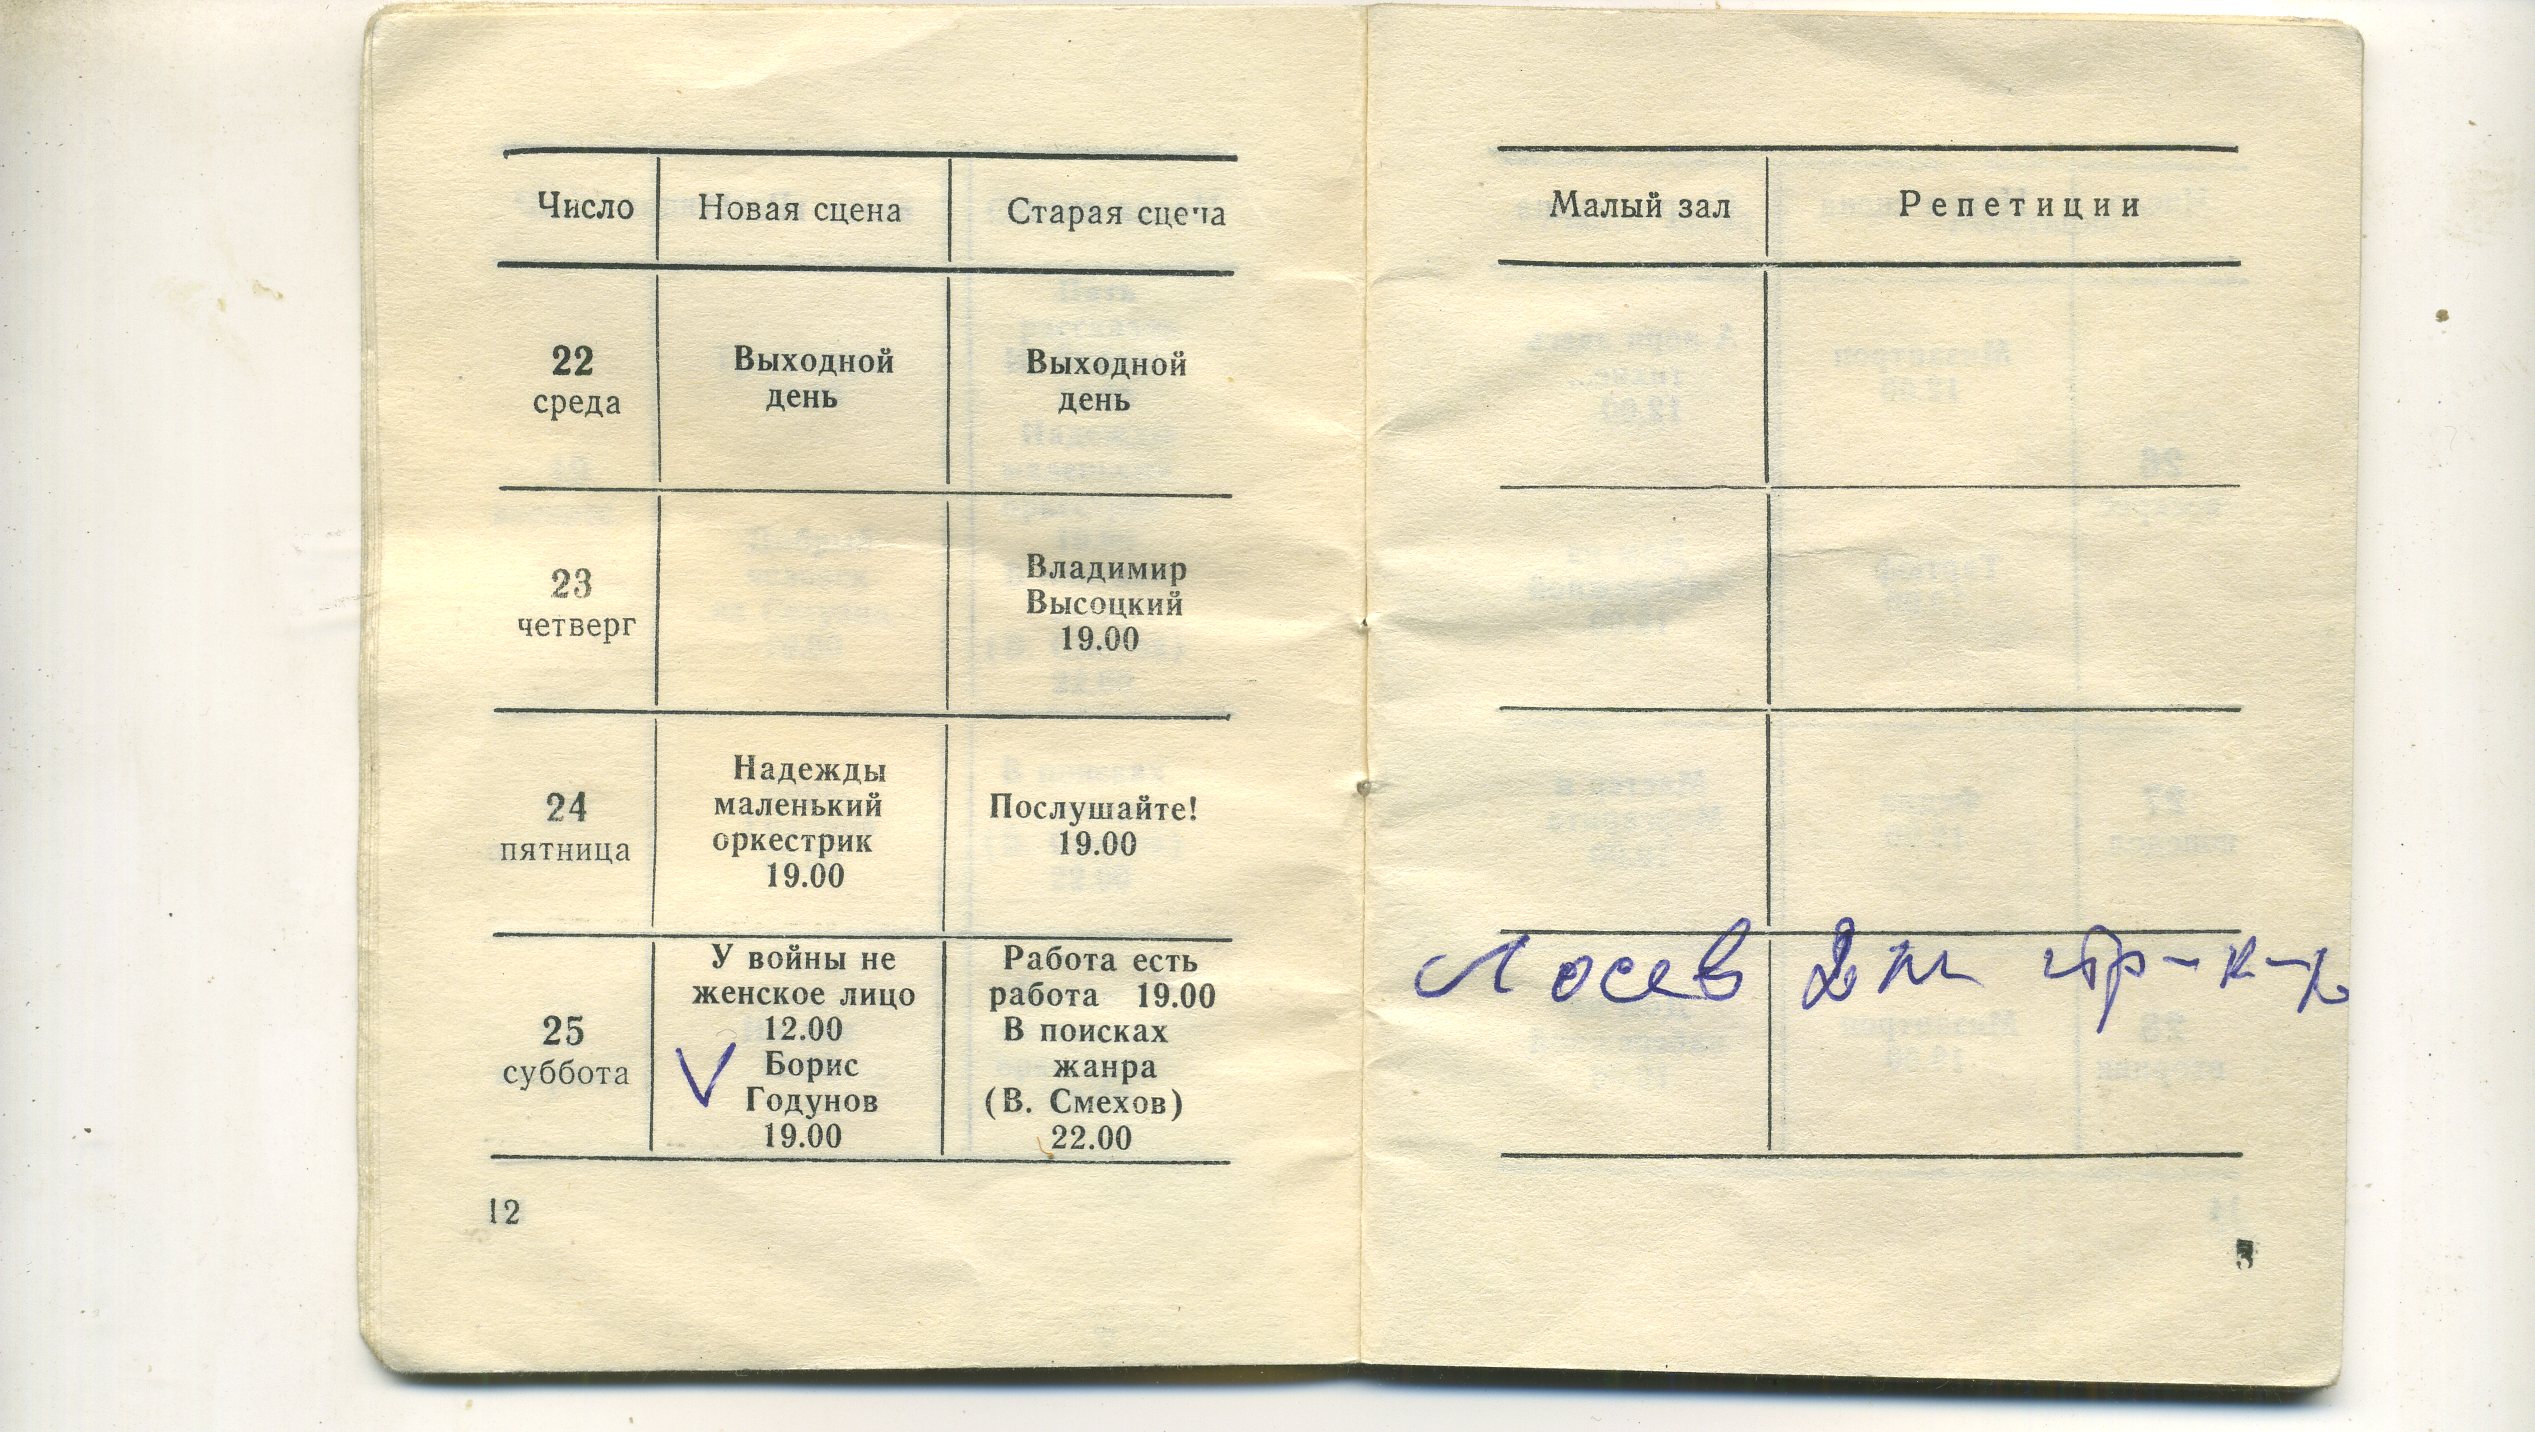 Число Новая сцена Старая сцеча
22
среда
Выходной
день
Выходной
день
23
четверг
Владимир
Высоцкий
19.00
24
пятница
Надежды
маленький
оркестрик
19.00
Послушайте!
19.00
25
суббота
У войны не
женское лицо
12.00
Борис
Годунов
19.00
Работа есть
работа 19.00
В поисках
жанра
(В. Смехов)
22.00
12
Малый зал Репетиции
Лосев